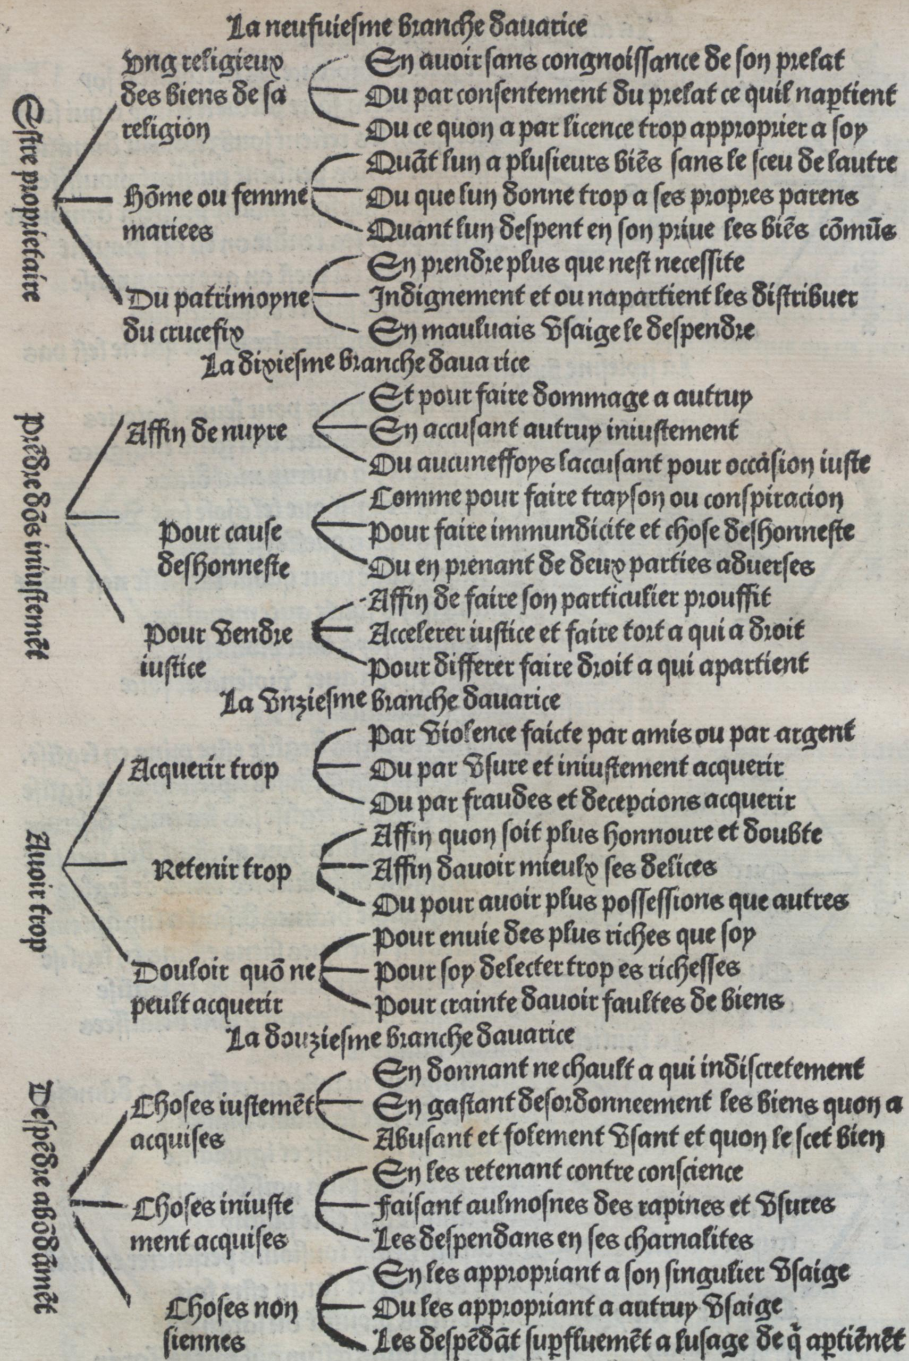 La neufuiesme branche dauarice
Estre proprietaire
Vng religieux
des biens de sa
religion
En auoir sans congnoissance de son prelat
Ou par consentement du prelat ce quil nap̱tient
Ou ce quon a par licence trop approprier a soy
Hõme ou femme
mariees
Quãt lun a plusieurs biẽs sans le sceu de lautre
Ou que lun donne trop a ses propres parens
Quant lun despent en son priue les biẽs cõmũs
Du patrimoyne
du crucefix
En prendre plus que nest necessite
Indignement et ou napartient les distribuer
En mauluais vsaige le despendre
La dixiesme branche dauarice
Prẽdre dõs iniustemẽt
Affin de nuyre
Et pour faire dommage a autruy
En accusant autruy iniustement
Ou aucuneffoys laccusant pour occasion iuste
Pour cause
deshonneste
Comme pour faire trayson ou conspiracion
Pour faire immundicite et chose deshonneste
Ou en prenant de deux parties aduerses
Pour vendre
iustice
Affin de faire son particulier prouffit
Accelerer iustice et faire tort a qui a droit
Pour differer faire droit a qui apartient
La vnziesme branche dauarice
Auoir trop
Acquerir trop
Par violence faicte par amis ou par argent
Ou par vsure et iniustement acquerir
Ou par fraudes et decepcions acquerir
Retenir trop
Affin quon soit plus honnoure et doubte
Affin dauoir mieulx ses delices
Ou pour auoir plus possessions que autres
Douloir quõ ne
peult acquerir
Pour enuie des plus riches que soy
Pour soy delecter trop es richesses
Pour crainte dauoir faultes de biens
La douziesme branche dauarice
Despẽdre abõdãmẽt
Choses iustemẽt
acquises
En donnant ne chault a qui indiscretement
En gastant desordonneement les biens quon a
Abusant et folement vsant et quon le scet bien
Choses iniuste
ment acquises
En les retenant contre conscience
Faisant aulmosnes des rapines et vsures
Les despendans en ses charnalites
Choses non
siennes
En les appropriant a son singulier vsaige
Ou les appropriant a autruy vsaige
Les despẽdãt sup̱fluemẽt a lusage de q̃ ap̱tiẽnẽt